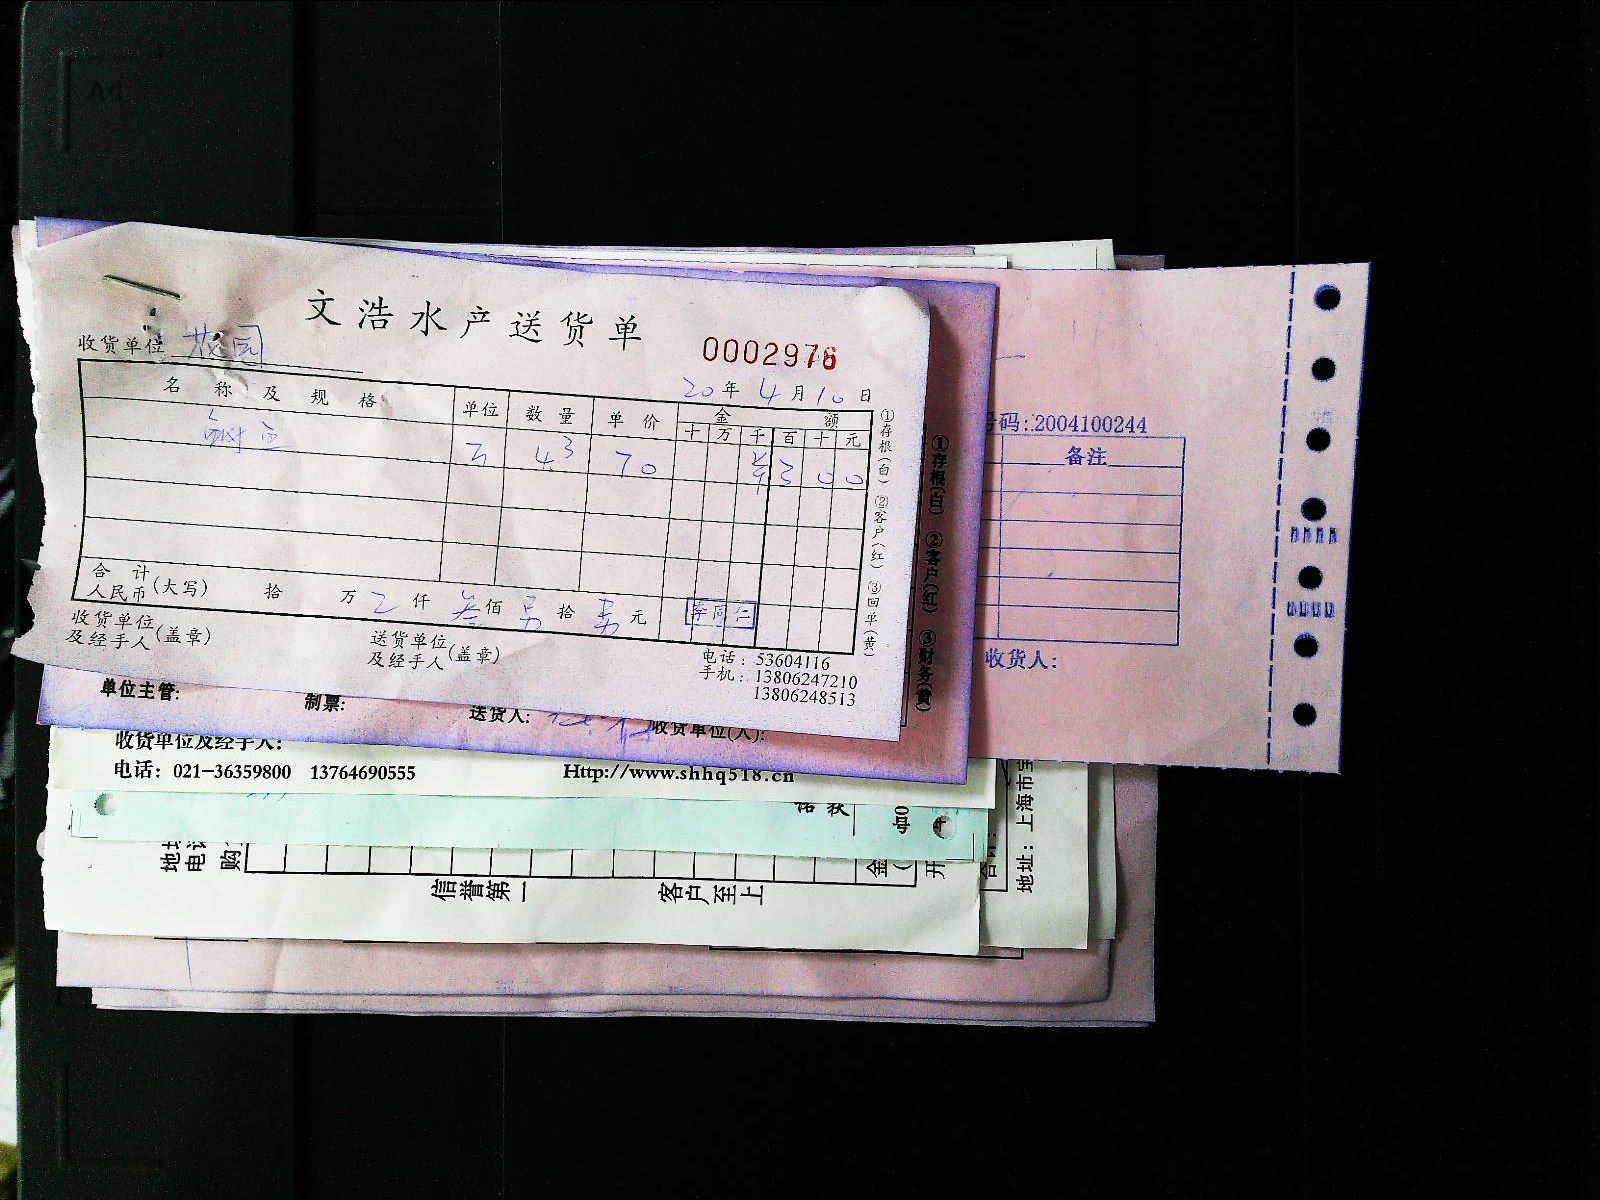 A4
文浩水产送货单
0002976
收货单位 花园
20年4月10日
名称及规格 单位 数量 单价 金额
十 万 千 百 十 元
43 70 3 0 0
①存根(白) ②客户(红) ③回单(黄)
合计
人民币(大写) 拾 万 仟 叁佰 拾 元
李同仁
收货单位
及经手人(盖章)
送货单位
及经手人(盖章)
电话:53604116
手机:13806247210
13806248513
①存根(白) ②客户(红) ③财务(黄)
单位主管: 制票: 送货人: 收货单位(人):
号码:2004100244
备注
收货人:
收货单位及经手人:
电话:021-36359800 13764690555
Http://www.shhq518.cn
信誉第一 客户至上
地址:上海市宝